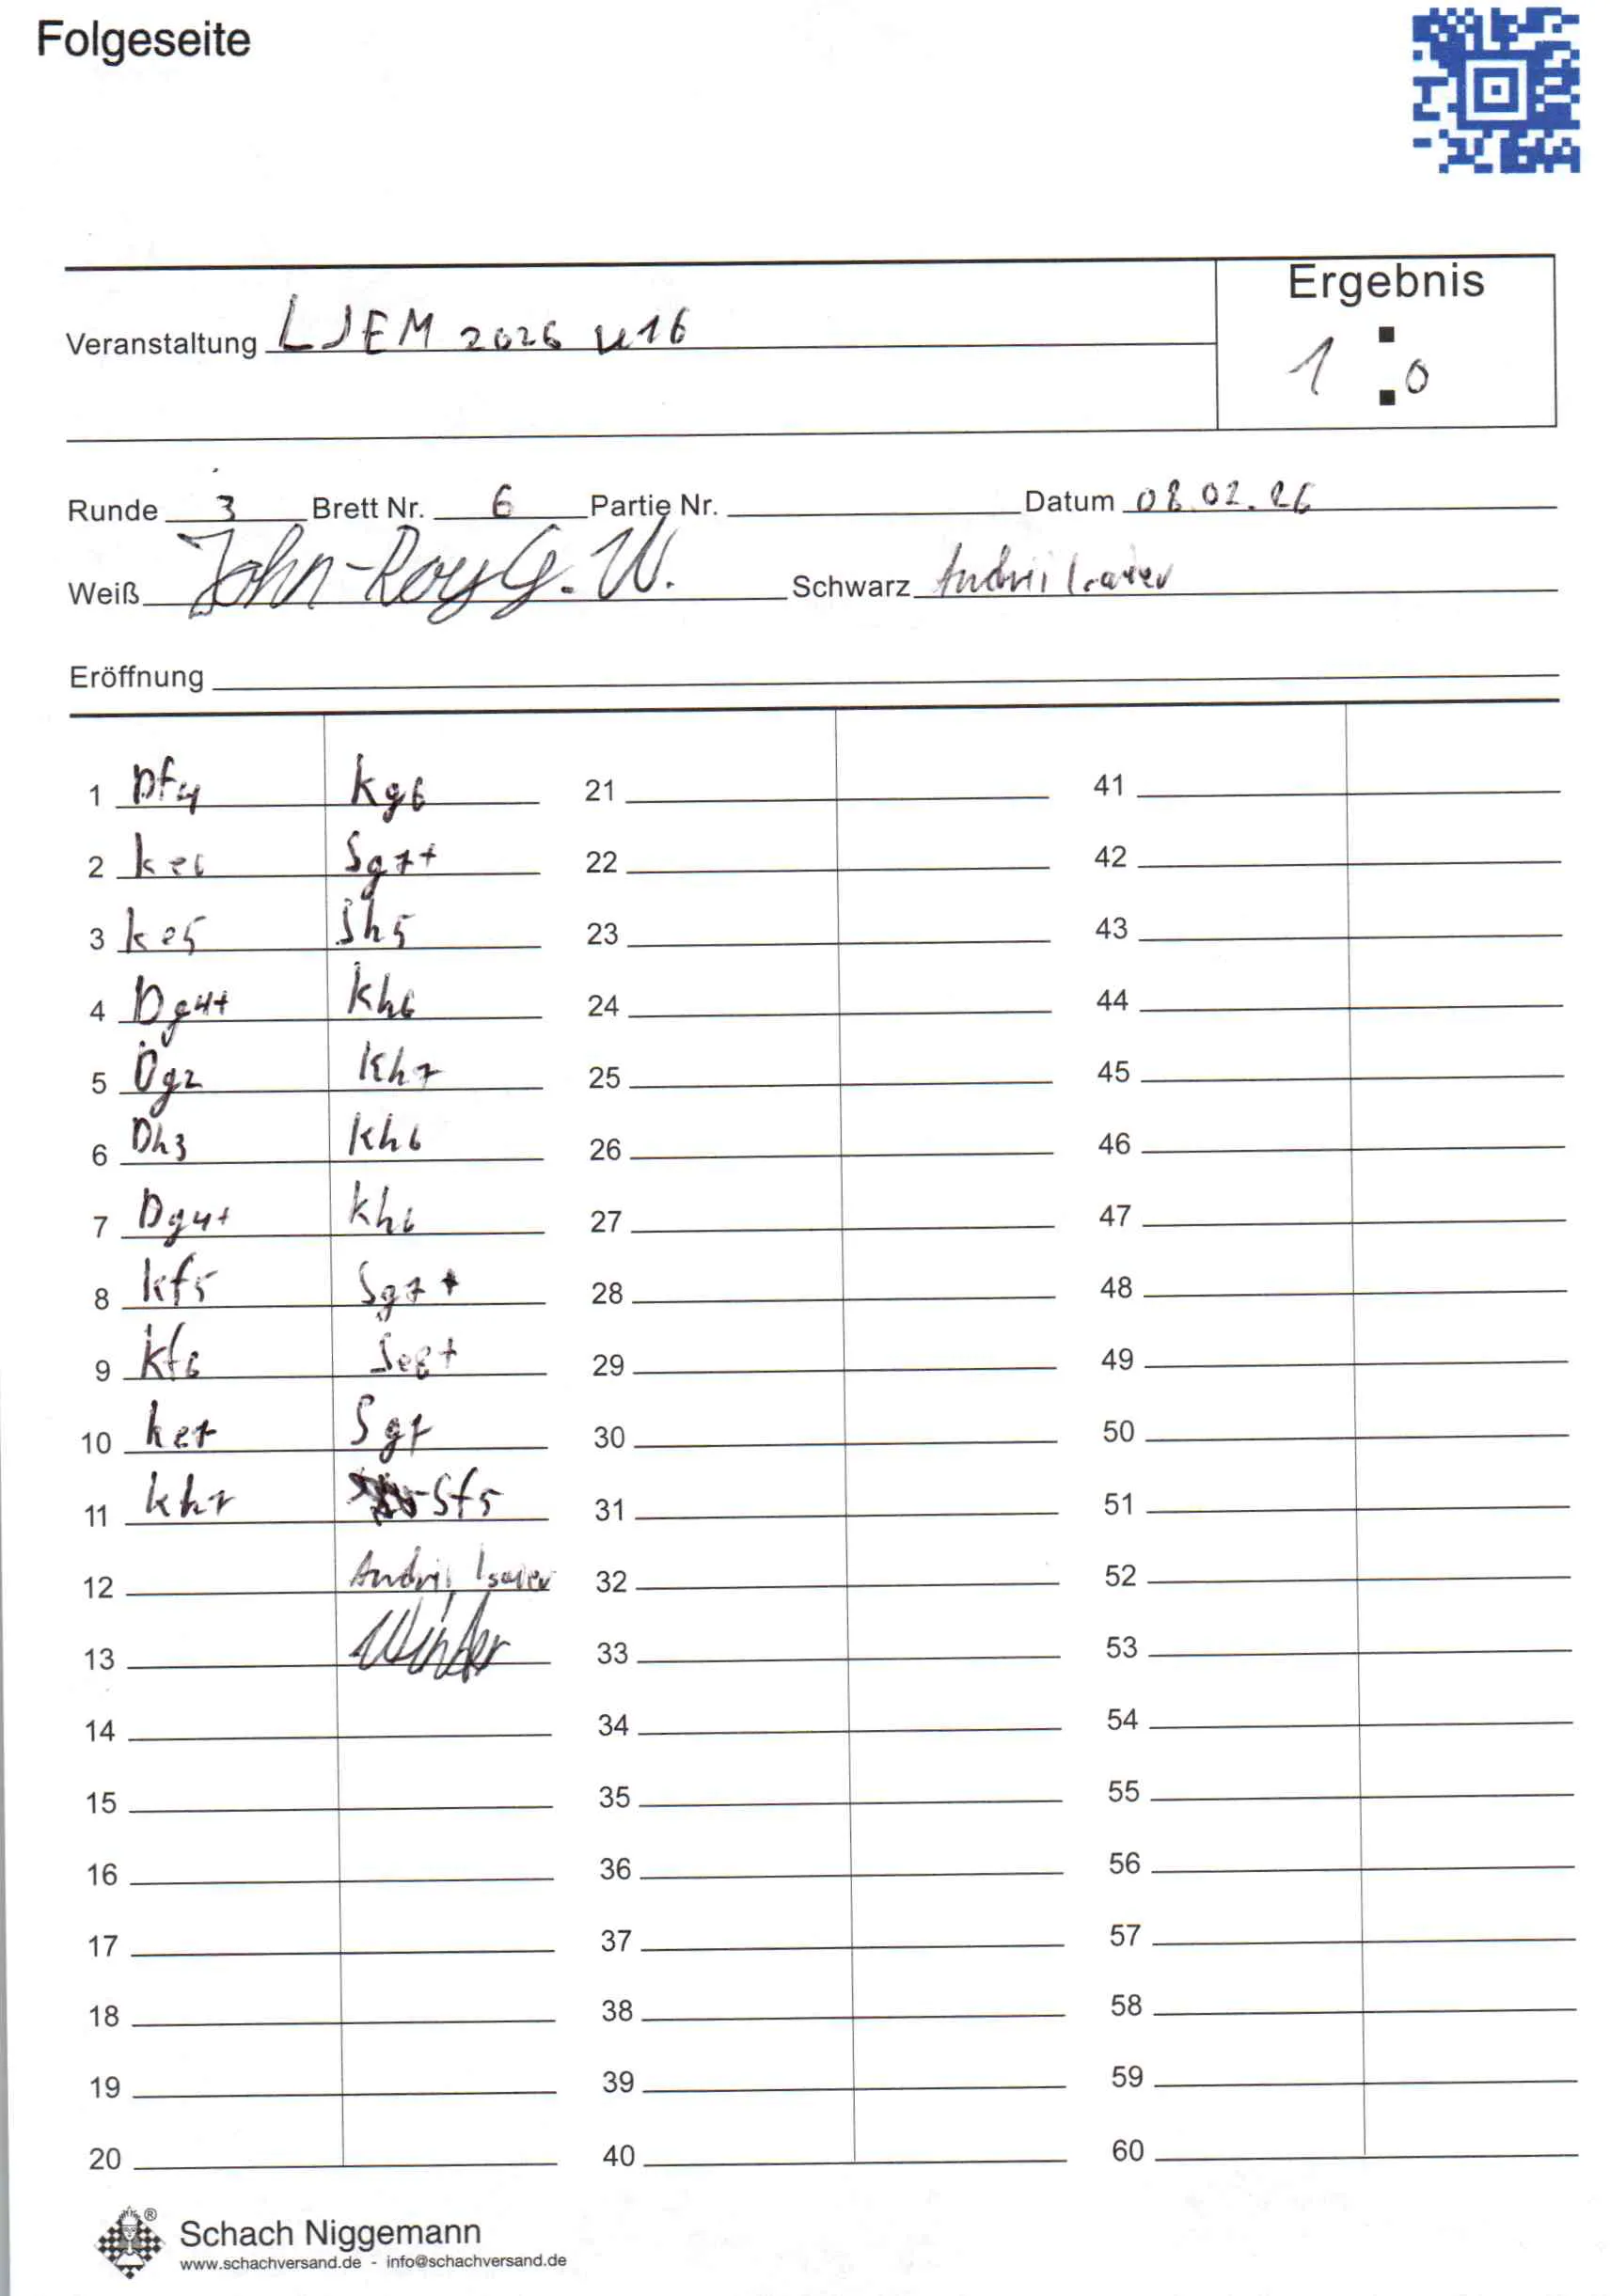 Folgeseite
Ergebnis
Veranstaltung LJEM 2026 U16
1 : 0
Runde 3 Brett Nr. 6 Partie Nr. Datum 08.02.26
Weiß John-Roy G. W. Schwarz Andrii Isaiev
Eröffnung
1 Df4 Kg6 21 41
2 Ke6 Sg7+ 22 42
3 Ke5 Sh5 23 43
4 Dg4+ Kh6 24 44
5 Dg2 Kh7 25 45
6 Dh3 Kh6 26 46
7 Dg4+ Kh6 27 47
8 Kf5 Sg7+ 28 48
9 Kf6 Se8+ 29 49
10 Ke7 Sg7 30 50
11 Kh7 Sf5 31 51
12 Andrii Isaiev 32 52
13 Winter 33 53
14 34 54
15 35 55
16 36 56
17 37 57
18 38 58
19 39 59
20 40 60
® Schach Niggemann
www.schachversand.de - info@schachversand.de